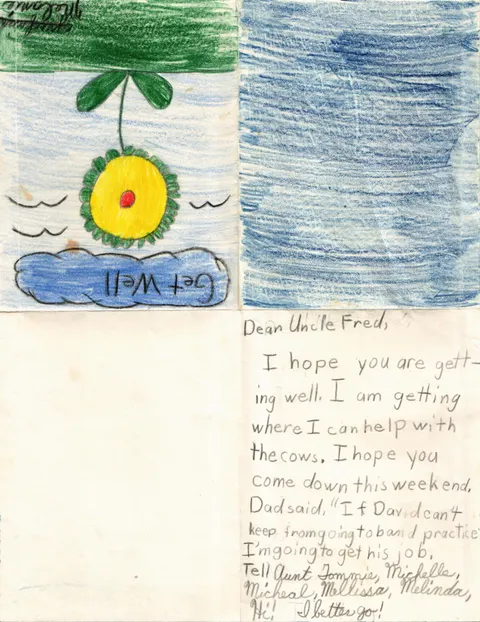 Get Well
Dear Uncle Fred,
I hope you are gett-
ing well. I am getting
where I can help with
the cows. I hope you
come down this weekend.
Dad said, "If David can't
keep from going to band practice
I'm going to get his job.
Tell Aunt Tommie, Michelle,
Micheal, Mellissa, Melinda,
Hi! I better go!